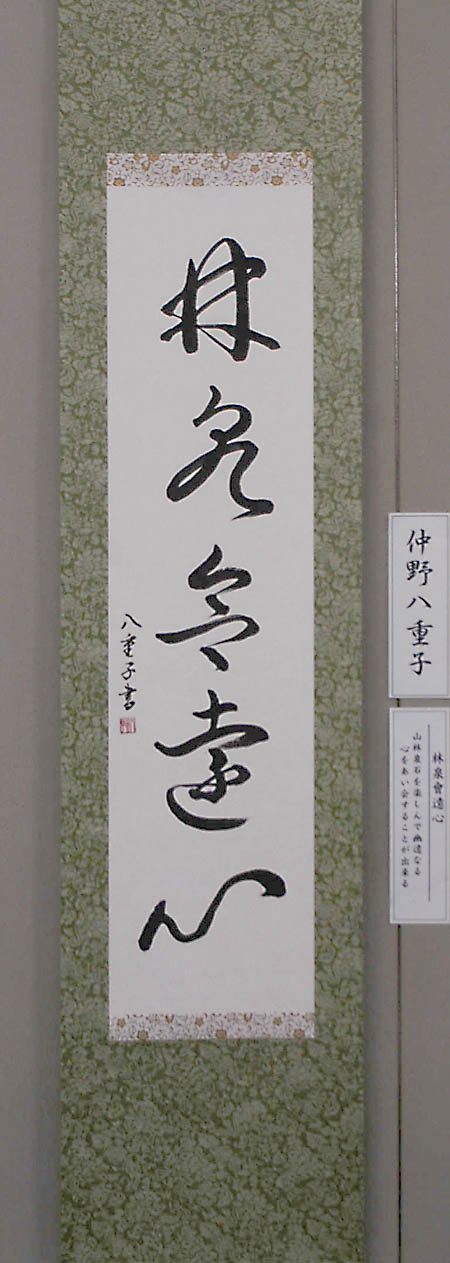 林泉會遠心
八重子書
仲野八重子
林泉會遠心
山林泉石を楽しんで幽遠なる
心をあい会することが出来る